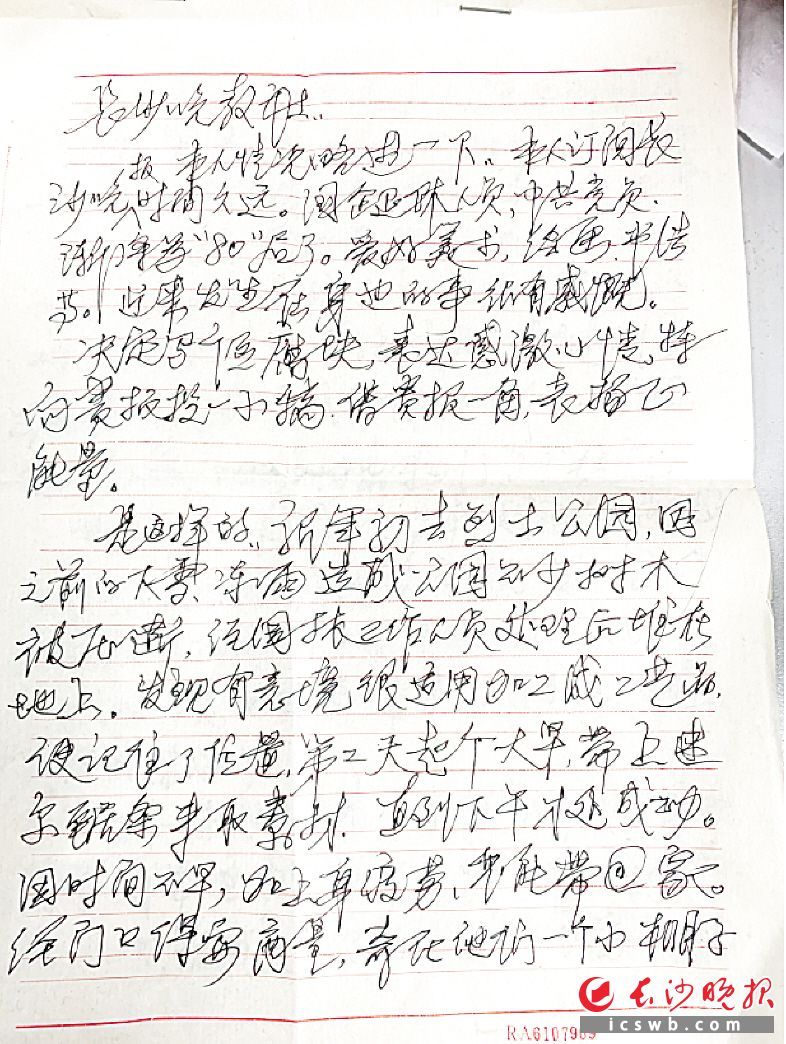 长沙晚报社:
报 本人情况略述一下:本人订阅长
沙晚,时间久远。国企退休人员,中共党员.
年岁"80"后了。爱好美术,绘画.书法
等。近来发生在身边的事很有感慨。
决定写个豆腐块,表达感激心情,特
向贵报投一小稿.借贵报一角,表扬正
能量。
是这样的:视年初去烈士公园,因
之前的大雪、冻雨造成公园不少树木
被压断,经园林工作人员处理后堆在
地上。发现有意境很适用加工成工艺品.
便记住了位置,第二天起个大早,带上
锯条来取素材.直到下午才成功。
因时间不早,加上身疲劳、不能带回家。
经门口保安商量,寄在他们一个小棚子
长沙晚报
icswb.com
RA6107989